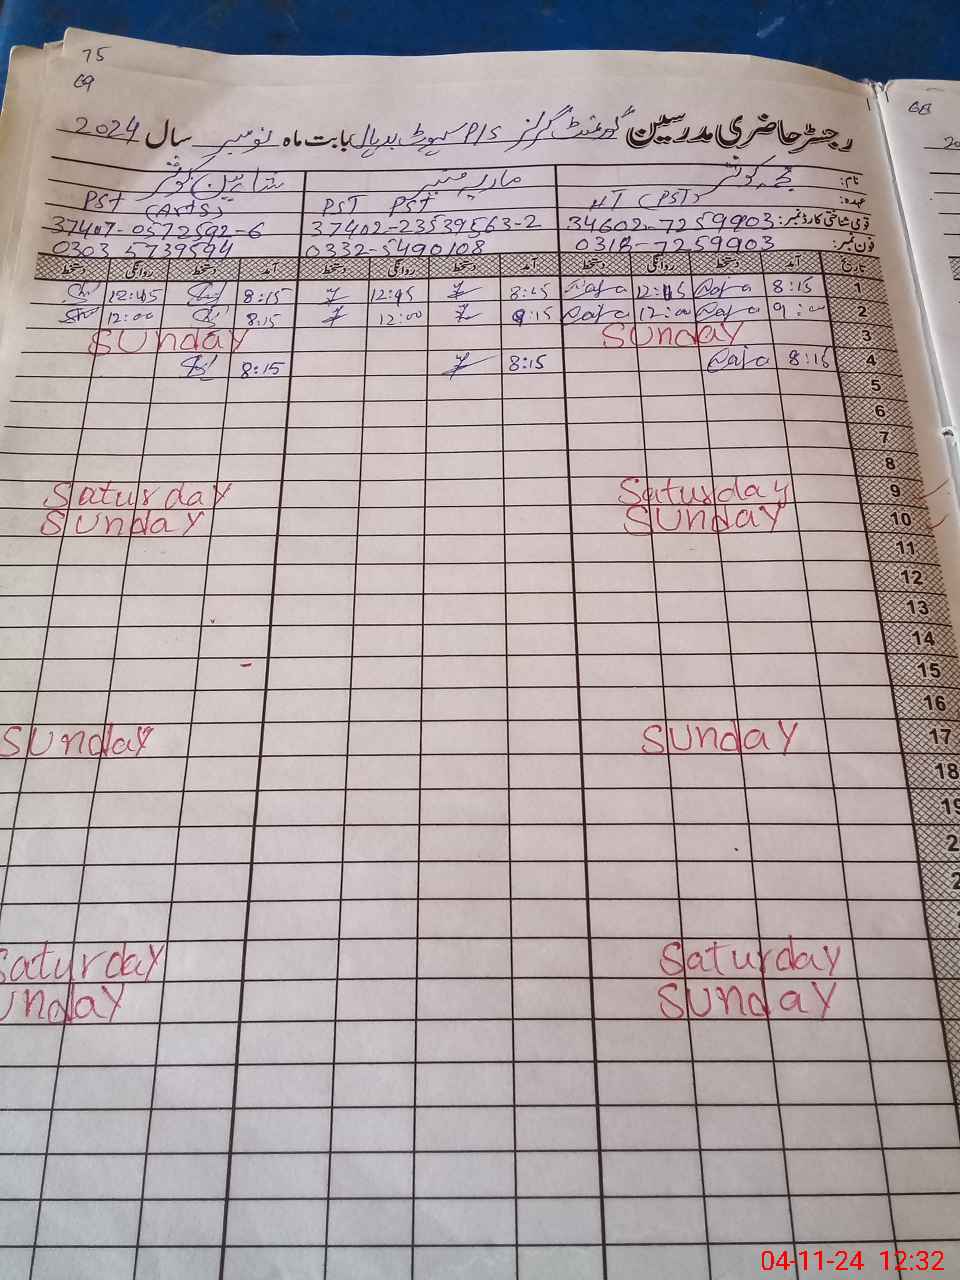 75
69
68
رجسٹر حاضری مدرسین گورنمنٹ گرلز P/S بابت ماہ نومبر سال 2024
نام: نجمہ کوثر ماریہ منیر کوثر
عہدہ: HT (PST) PST PST PST (Arts)
قومی شناختی کارڈ نمبر: 34602-7259903 37402-23539563-2 37407-0572592-6
فون نمبر: 0318-7259903 0332-5490108 0303 5739594
تاریخ آمد دستخط روانگی دستخط آمد دستخط روانگی دستخط آمد دستخط روانگی دستخط
1 8:15 12:45 8:15 12:45 8:15 12:45
2 9:00 12:00 9:15 12:00 8:15 12:00
3 Sunday Sunday
4 8:15 8:15 8:15
5
6
7
8
9 Saturday Saturday
10 Sunday Sunday
11
12
13
14
15
16
17 Sunday Sunday
18
19
2
2
Saturday Saturday
Sunday unday
04-11-24 12:32